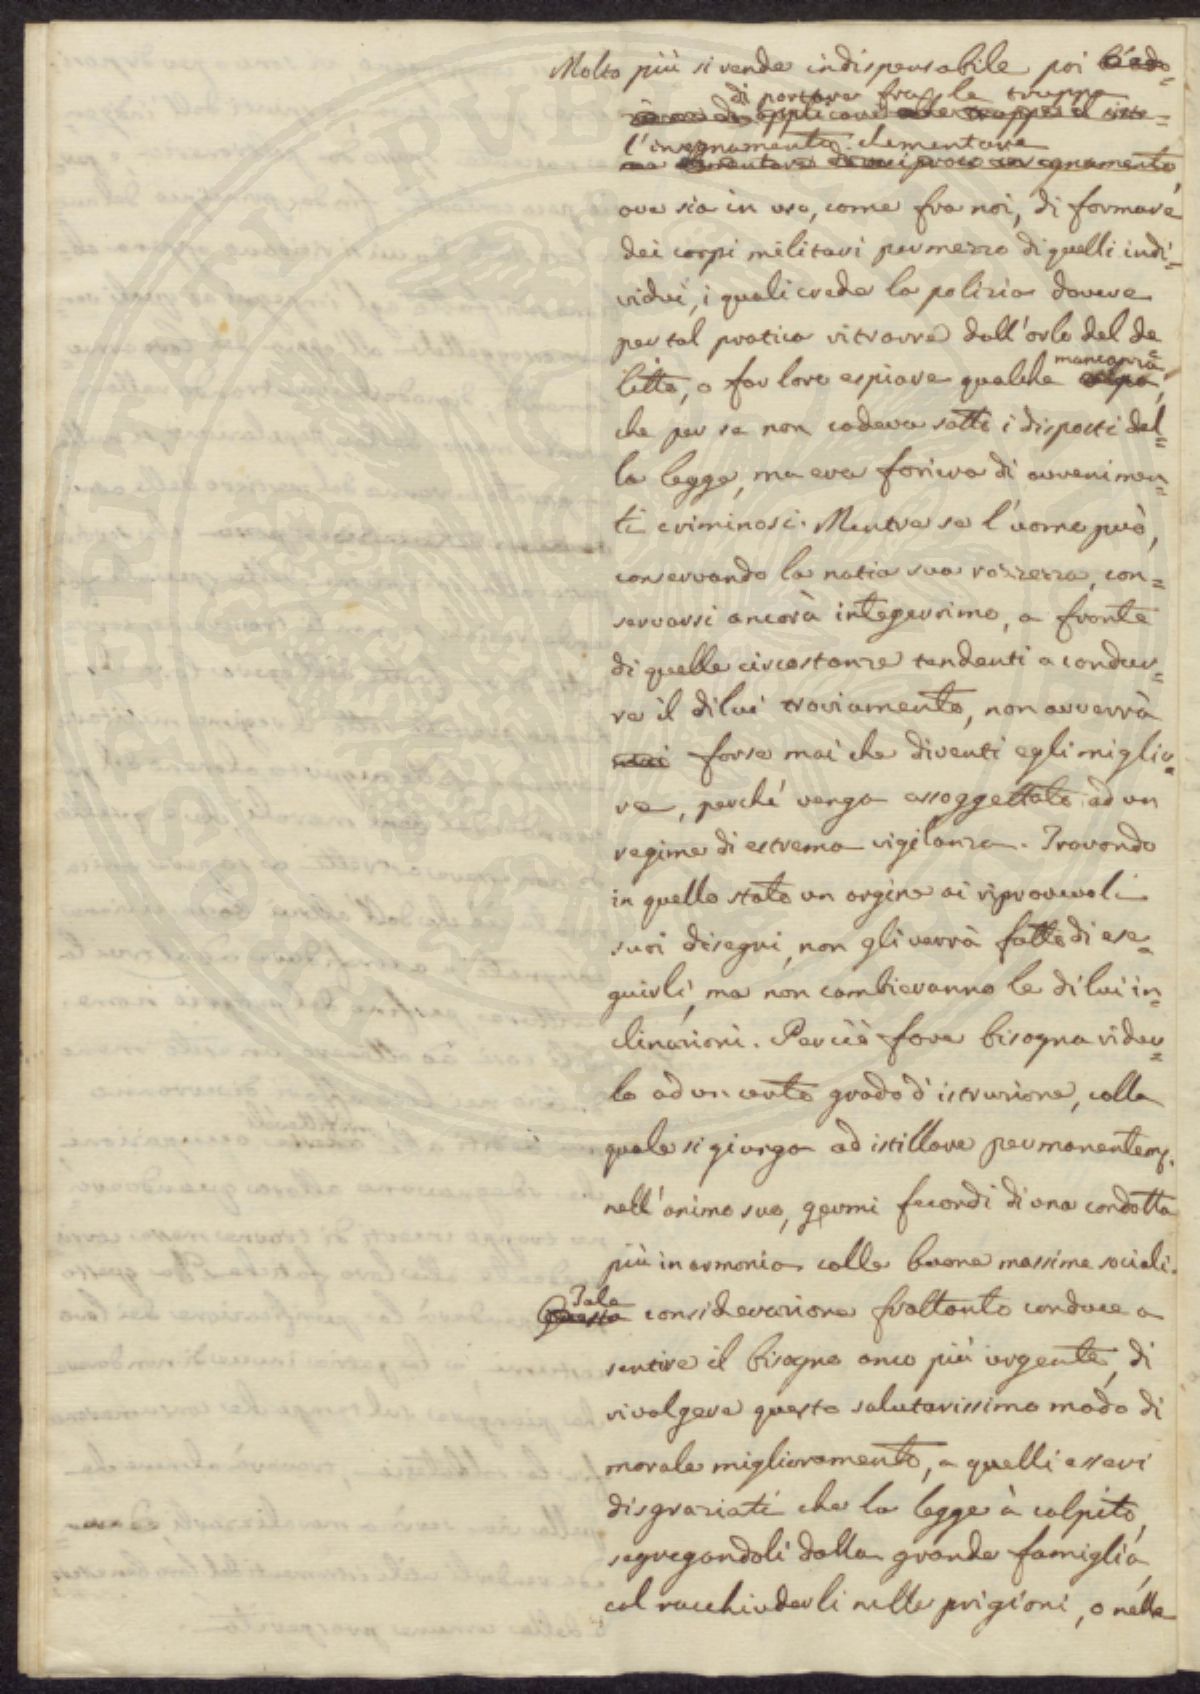 Molto più si rende indispensabile poi
di portare fra le truppe
l'insegnamento elementare
ove sia in uso, come fra noi, di formare
dei corpi militari per mezzo di quelli indi=
vidui, i quali crede la polizia dovere
per tal pratica ritrarre dall'orlo del de
litto, o far loro espiare qualche mancanza,
che per se non cadeva sotto i disposti del=
la legge, ma era foriera di avvenimen=
ti criminosi. Mentre se l'uomo può,
conservando la natia sua rozzezza, con=
servarsi ancora integerrimo, a fronte
di quelle circostanze tendenti a condur=
re il di lui traviamento, non avverrà
mai forse mai che diventi egli miglio=
re, perché venga assoggettato ad un
regime di estrema vigilanza. Trovando
in quello stato un argine ai riprovevoli
suoi disegni, non gli verrà fatto di ese=
guirli, ma non cambieranno le di lui in=
clinazioni. Perciò fare bisogna ridur=
lo ad un certo grado d'istruzione, colla
quale si giunga ad istillare permanentem.
nell'animo suo, germi fecondi di una condotta
più in armonia colle buone massime sociali.
Tale
Questa considerazione frattanto conduce a
sentire il bisogno anco più urgente, di
rivolgere questo salutarissimo modo di
morale miglioramento, a quelli esseri
disgraziati che la legge à colpito,
segregandoli dalla grande famiglia,
col racchiuderli nelle prigioni, o nelle